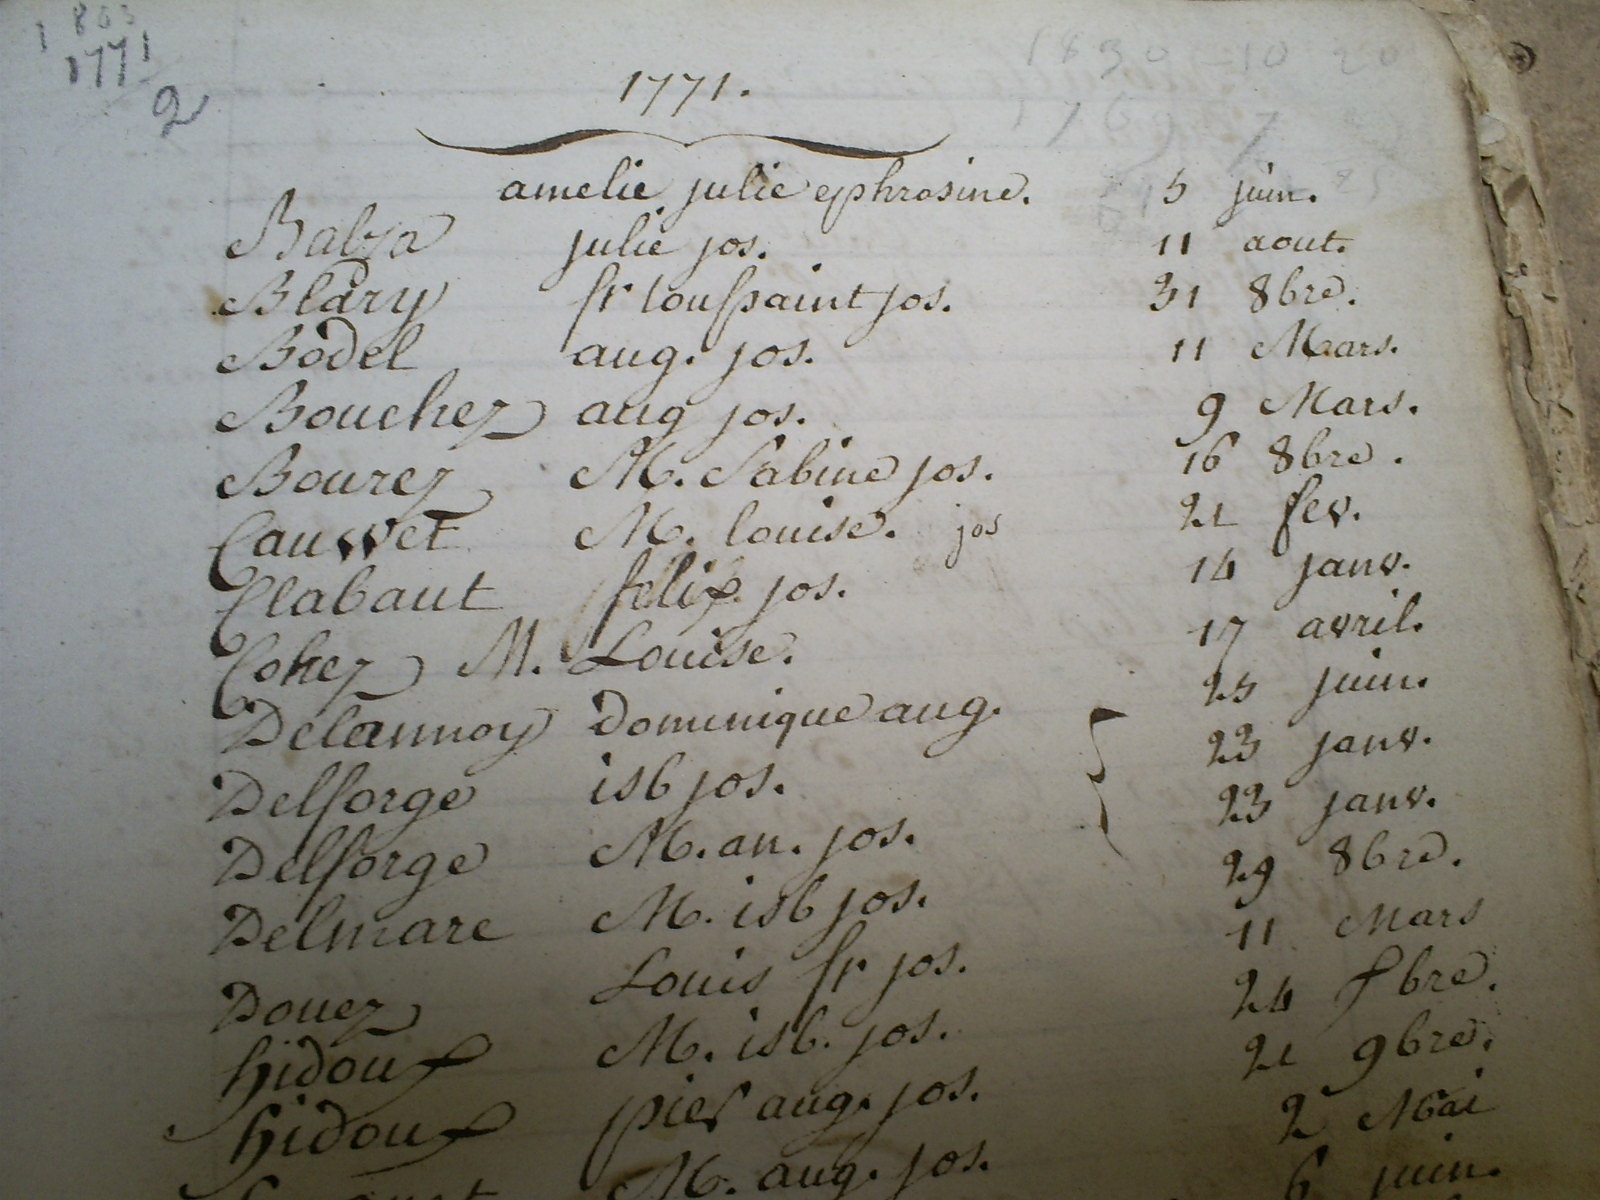 1803
1771
2
1771.
amelie julie ephrosine. 5 juin.
Balza julie jos. 11 aout.
Blary fr toussaint jos. 31 8bre.
Bodel aug. jos. 11 Mars.
Bouchez aug jos. 9 Mars.
Bourez M. Sabine jos. 16 8bre.
Cauwet M. louise. jos 21 fev.
Clabaut felix jos. 14 janv.
Cohez M. Louise. 17 avril.
Delannoy Dominique aug. 25 juin.
Delforge isb jos. 23 janv.
Delforge M. an. jos. 23 janv.
Delmare M. isb jos. 29 8bre.
Douez Louis fr jos. 11 Mars
hidoux M. isb. jos. 24 7bre.
hidoux pier aug. jos. 21 9bre.
M. aug. jos. 2 Mai
6 juin.